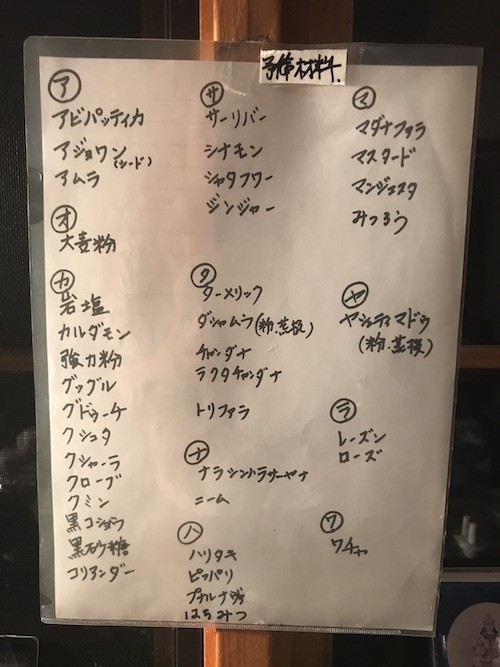 予備材料.
ア
アビパッティカ
アジョワン(シード)
アムラ
オ
大麦粉
カ
岩塩
カルダモン
強力粉
グッグル
グドゥーチ
クシュタ
クシャーラ
クローブ
クミン
黒コショウ
黒砂糖
コリアンダー
サ
サーリバー
シナモン
シャタフワー
ジンジャー
タ
ターメリック
ダシャムラ(粉.荒根)
チャンダナ
ラクタチャンダナ
トリファラ
ナ
ナラシンハラサーヤナ
ニーム
ハ
ハリタキ
ピッパリ
はちみつ
マ
マダナファラ
マスタード
マンジュスタ
みつろう
ヤ
ヤシュティマドウ
(粉.荒根)
ラ
レーズン
ローズ
ワ
ワチャ